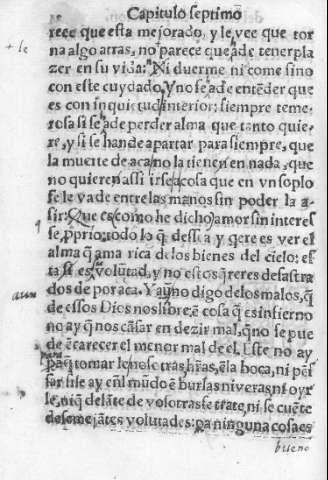 Capitulo septimo
rece que esta mejorado, y le vee que tor
na algo atras, no parece que a de tener pla
zer en su vida: Ni duerme ni come sino
con este cuydado. Y no se a de entēder que
es con inquietud interior: siempre teme-
rosa si se a de perder alma que tanto quie-
re, y si se han de apartar para siempre, que
la muerte de aca, no la tienen en nada, que
no quieren assi irse a cosa que en vn soplo
se le va de entre las manos sin poder la a-
sir: Que es (como he dicho) amor sin interes
se, pprio: todo lo q̄ dessea y q̄rere es ver el
alma q̄ ama rica de los bienes del cielo: es
ta si es volūtad, y no estos q̄reres desastra
dos de por aca. Y aun no digo de los malos, q̄
de essos Dios nos libre: ē cosa q̄ es infierno
no ay q̄ nos cāsar en dezir mal, q̄ no se pue
de ēcarecer el menor mal de el. Este no ay
pa q̄ tomar le
la boca, ni pēf
far le ay en̄l mūdo ē burlas ni veras ni oyr
le, ni q̄ delāte de vosotras se trate, ni se cuēte
de semejātes volūtades: pa ninguna cosa es
bueno